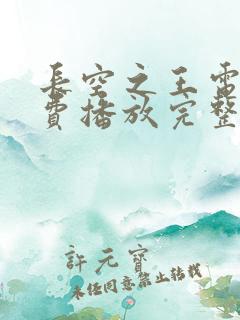 长空之王雷
费播放完整
許元寶
未经同意禁止转载